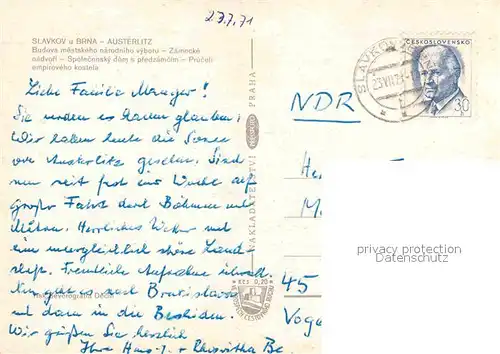 23.7.71
SLAVKOV u BRNA – AUSTERLITZ
Budova městského národního výboru – Zámecké
nádvoří – Společenský dům s předzámčím – Průčelí
empírového kostela
Liebe Familie
Sie werden es kaum glauben:
Wir haben heute die Sonne
von Austerlitz gesehen. Sind
nun seit fast ein Woche auf
großer Fahrt durch Böhmen und
Mähren. Herrliches Wetter und
eine unvergleichlich schöne Land-
schaft. Freundliche Aufnahme überall.
Nun geht es nach Bratislava
und dann in die Beskiden.
Wir grüßen Sie herzlich
Ihre Hans-J. + Be
NAKLADATELSTVÍ PRAHA
KČS 0,20
ČESKOSLOVENSKO
30
SLAVKOV
NDR
He
M
45
Voge
permission protected
Datenschutz